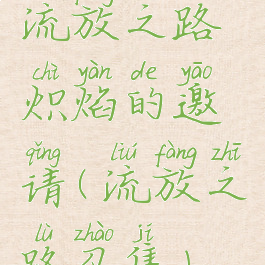 流放之路
chì yàn de yāo
炽焰的邀
qǐng liú fàng zhī
请(流放之
lù zhào jí
路召集)